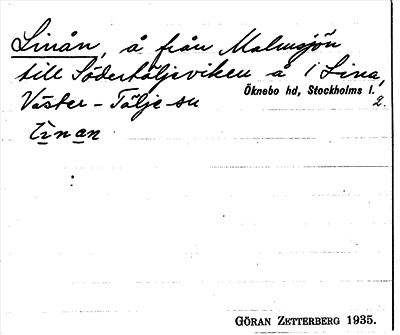 Linån, å från Malmsjön
till Södertäljeviken å / Lina,
Öknebo hd, Stockholms l.
Väster-Tälje sn 2.
li̱na̱n
:
GÖRAN ZETTERBERG 1935.